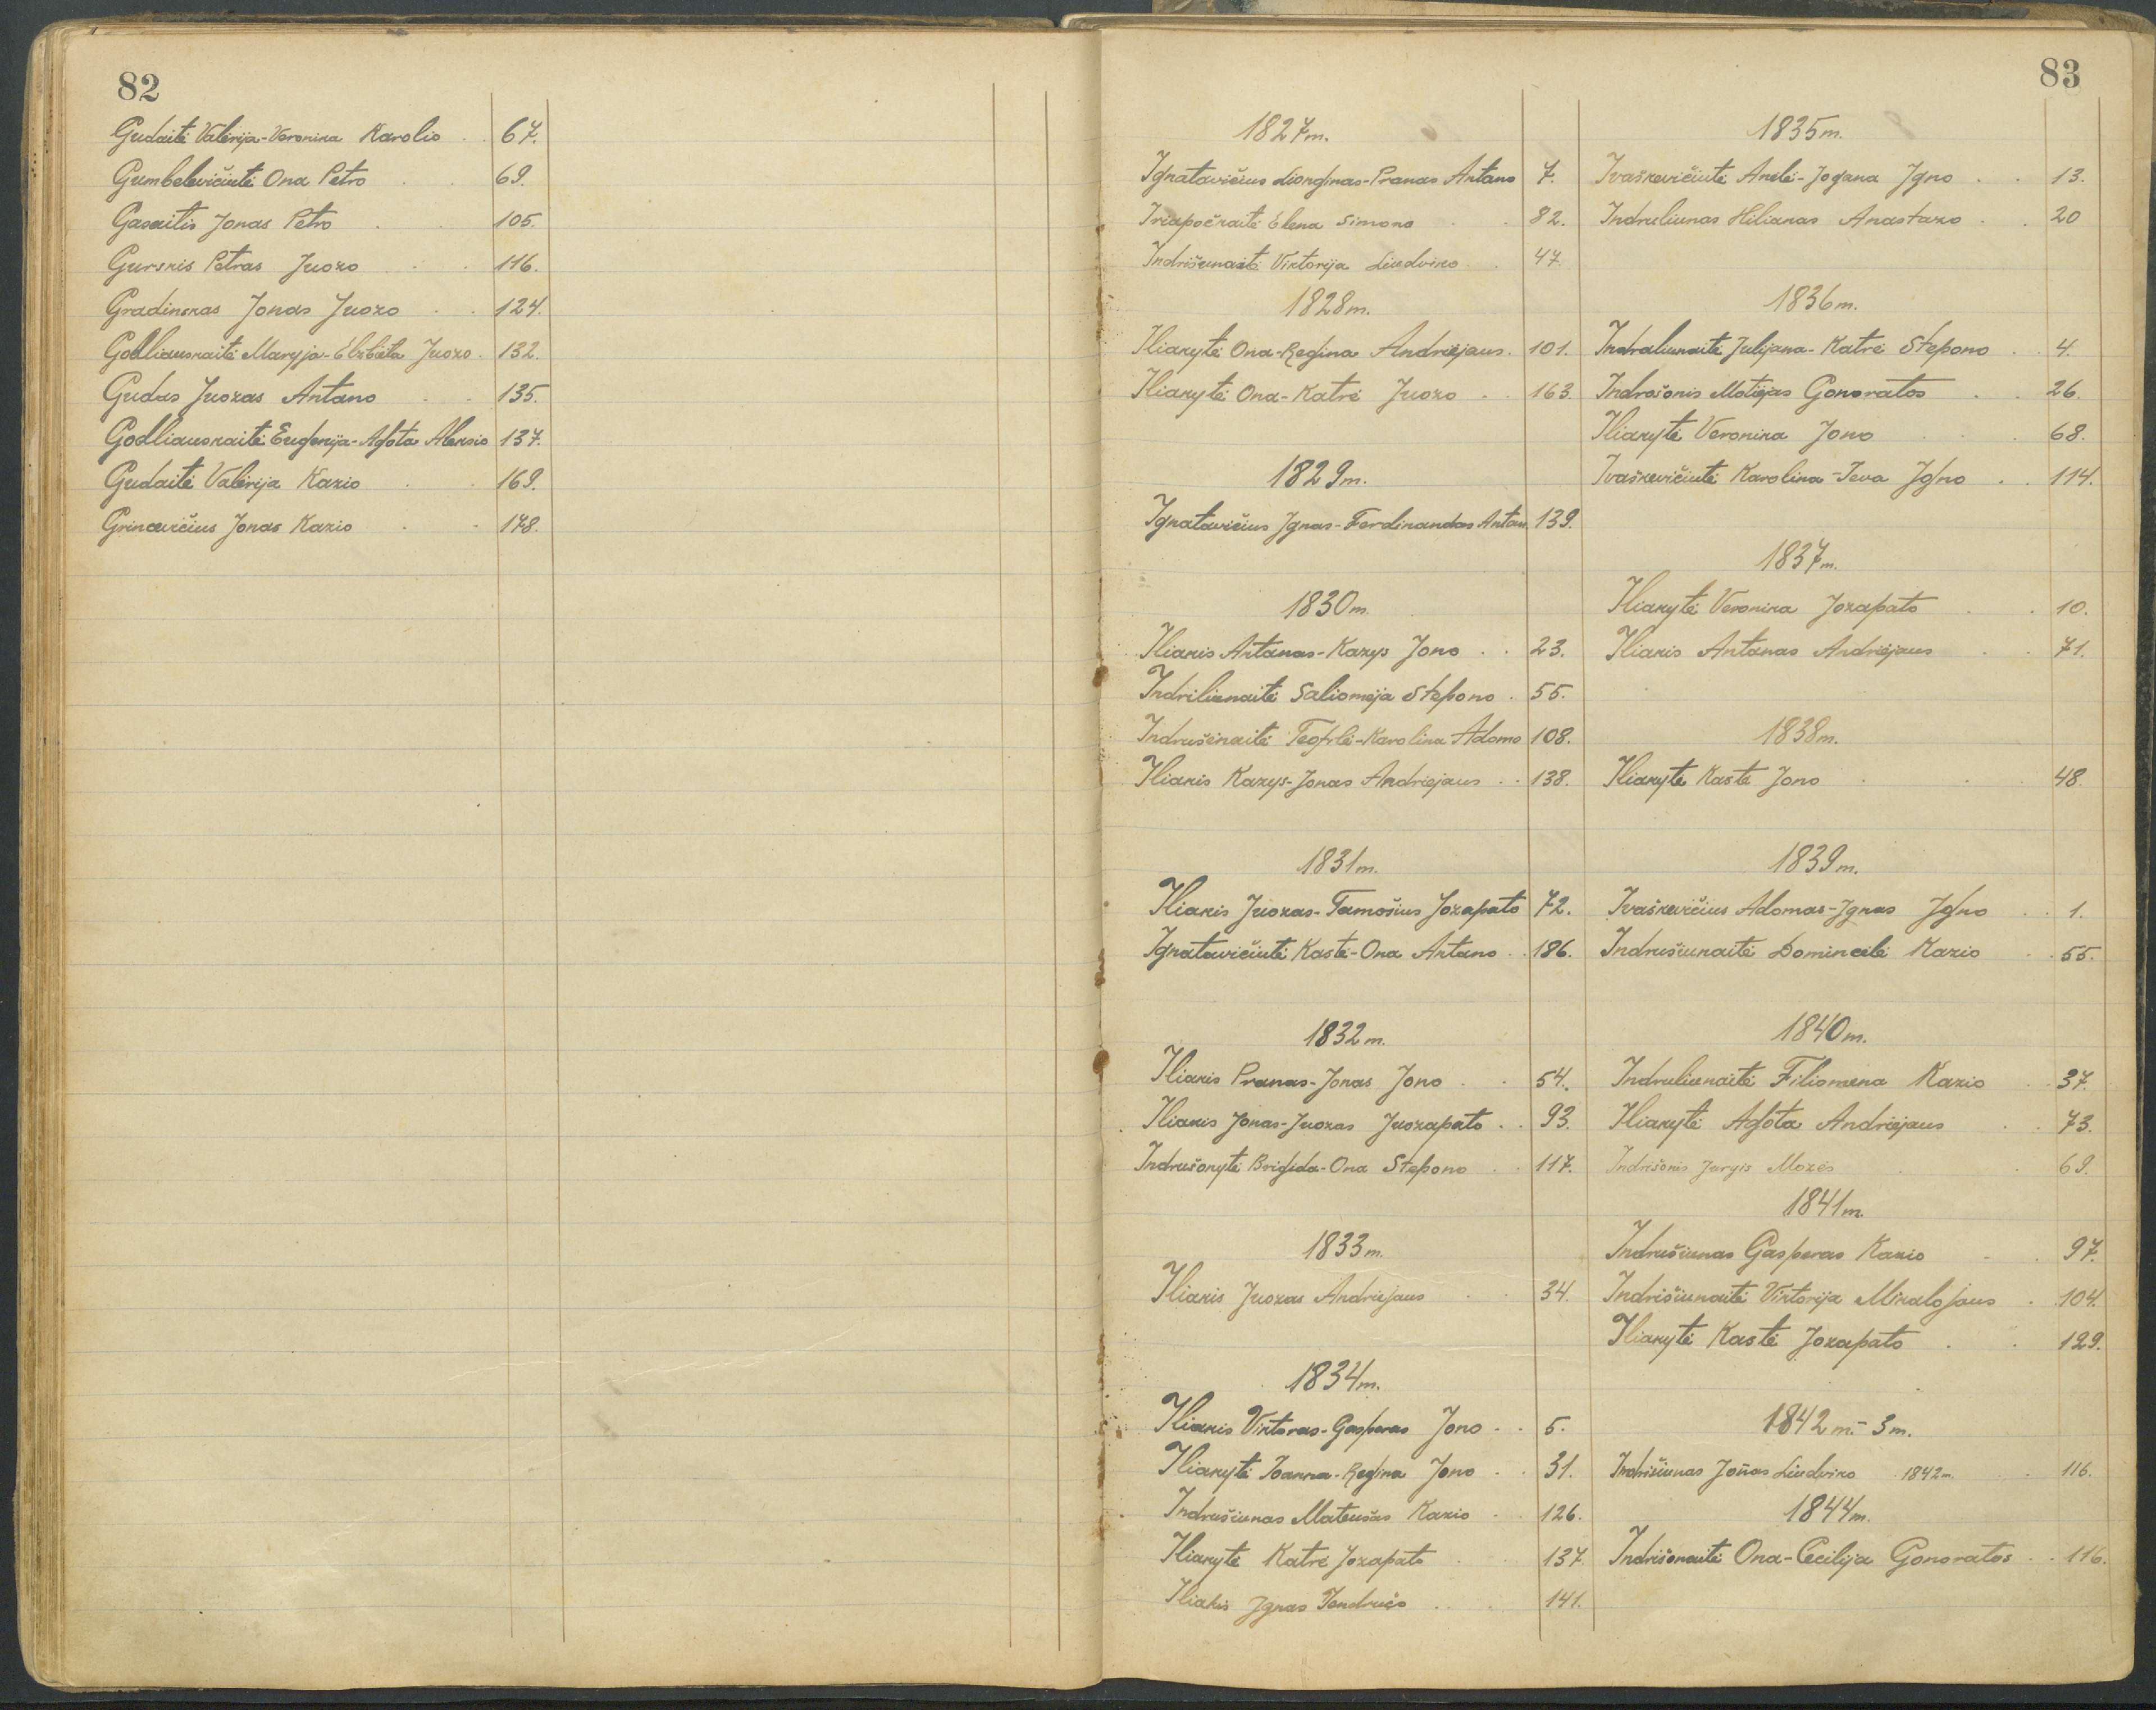 82
Gudaitė Valerija-Veronika Karolio . . 67.
Gumbelevičiutė Ona Petro . . 69.
Gasaitis Jonas Petro . . 105.
Gurskis Petras Juozo . . 116.
Gradinskas Jonas Juozo . . 124.
Godliauskaitė Maryja-Elzbieta Juozo . 132.
Gudas Juozas Antano . . 135.
Godliauskaitė Eugenija-Agota Aleksio 137.
Gudaitė Valerija Kazio . . 169.
Grincevičius Jonas Kazio . . 178.
83
1827m.
Ignatavičius Lionginas-Pranas Antano 7.
Iriapočkaitė Elena Simono . . 82.
Indrišunaitė Viktorija Liudviko . . 47.
1828m.
Iliakytė Ona-Regina Andriejaus . 101.
Iliakytė Ona-Katrė Juozo . . 163.
1829m.
Ignatavičius Ignas-Ferdinandas Antan. 139.
1830m.
Iliakis Antanas-Kazys Jono . . 23.
Indriliunaitė Saliomėja Stepono . 55.
Indrušėnaitė Teofilė-Karolina Adomo 108.
Iliakis Kazys-Jonas Andriejaus . . 138.
1831m.
Iliakis Juozas-Tamošius Jozapato 72.
Ignatavičiutė Kastė-Ona Antano . . 186.
1832m.
Iliakis Pranas-Jonas Jono . . 54.
Iliakis Jonas-Juozas Juozapato . . 93.
Indrušonytė Brigida-Ona Stepono . . 117.
1833m.
Iliakis Juozas Andriejaus . . 34.
1834m.
Iliakis Viktoras-Gasperas Jono . . 5.
Iliakytė Joanna-Regina Jono . . 31.
Indrušiunas Mateušas Kazio . 126.
Iliakytė Katrė Jozapato . . 137.
Iliakis Ignas Jendriės . . . 141.
1835m.
Ivaškevičiutė Anelė-Jogana Igno . . 13.
Indruliunas Hilianas Anastazo . . 20
1836m.
Indraliunaitė Julijana-Katrė Stepono . . 4.
Indrošonis Motiejas Gonoratos . . 26.
Iliakytė Veronika Jono . . . 68.
Ivaškevičiutė Karolina-Ieva Igno . . 114.
1837m.
Iliakytė Veronika Jozapato . . 10.
Iliakis Antanas Andriejaus . . 71.
1838m.
Iliakytė Kastė Jono . . . 48.
1839m.
Ivaškevičius Adomas-Ignas Igno . . 1.
Indrušiunaitė Domincelė Kazio . . 55.
1840m.
Indruliunaitė Filiomena Kazio . . 37.
Iliakytė Agota Andriejaus . . 73.
Indrišonis Jurgis Mozės . . 69.
1841m.
Indrušiunas Gasperas Kazio . . 97.
Indrišiunaitė Viktorija Mikalojaus . . 104.
Iliakytė Kastė Jozapato . . 129.
1842m.-3m.
Indrišiunas Jonas Liudviko 1842m. . 116.
1844m.
Indrišonaitė Ona-Cecilija Gonoratos . . 116.